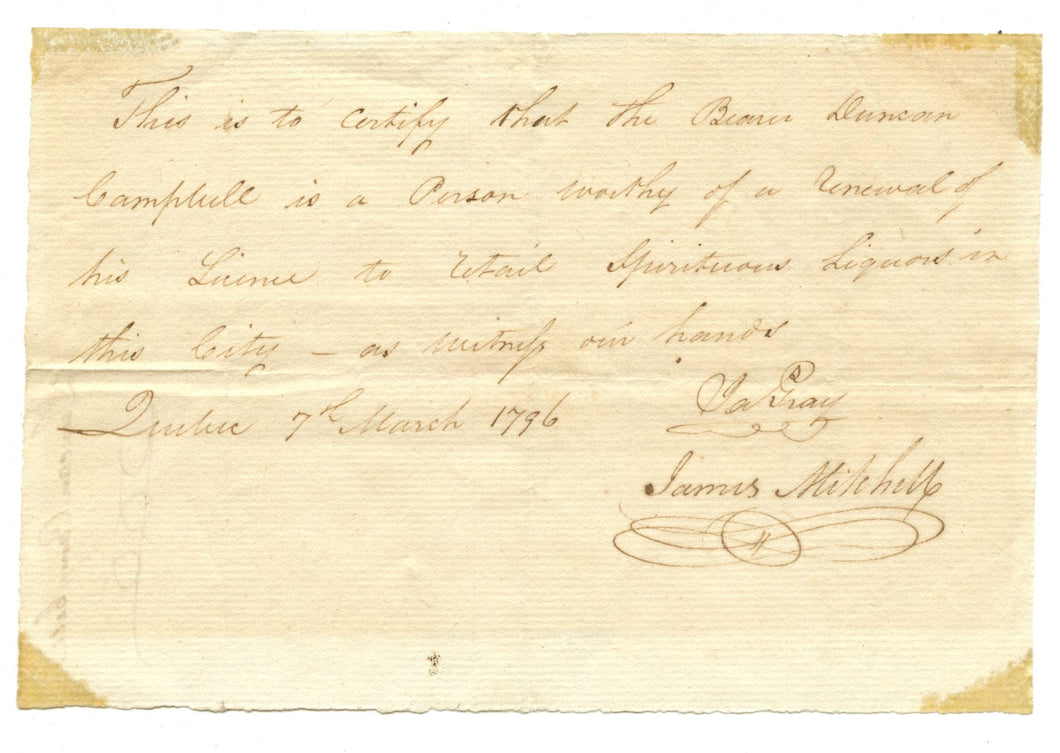 This is to certify that the Bearer Duncan
Campbell is a Person worthy of a renewal of
his Licence to retail Spirituous Liquors in
this City – as witness our hands
Quebec 7th March 1796
Jas Gray
James Mitchell